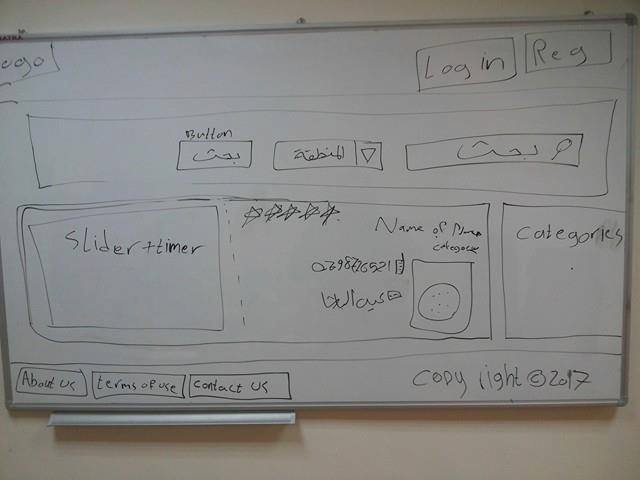 ogo
Log in
Reg
Button
بحث
المنطقة
بحث
Slider + timer
Name of
categories
Categories
About us
terms of use
contact us
Copy right © 2017